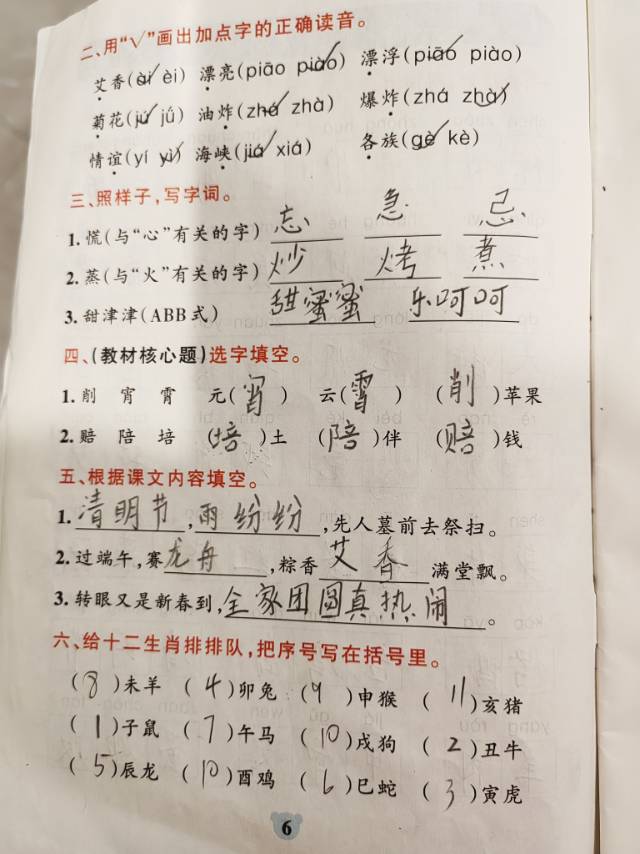 二、用“√”画出加点字的正确读音。
艾香(ài èi) 漂亮(piāo piào) 漂浮(piāo piào)
菊花(jú jǘ) 油炸(zhá zhà) 爆炸(zhá zhà)
情谊(yí yì) 海峡(jiá xiá) 各族(gè kè)
三、照样子,写字词。
1.慌(与“心”有关的字) 忘 急 忌
2.蒸(与“火”有关的字) 炒 烤 煮
3.甜津津(ABB式) 甜蜜蜜 乐呵呵
四、(教材核心题)选字填空。
1.削 宵 霄 元(宵) 云(霄) (削)苹果
2.赔 陪 培 (培)土 (陪)伴 (赔)钱
五、根据课文内容填空。
1.清明节,雨纷纷,先人墓前去祭扫。
2.过端午,赛龙舟,粽香艾香满堂飘。
3.转眼又是新春到,全家团圆真热闹。
六、给十二生肖排排队,把序号写在括号里。
(8)未羊 (4)卯兔 (9)申猴 (11)亥猪
(1)子鼠 (7)午马 (10)戌狗 (2)丑牛
(5)辰龙 (10)酉鸡 (6)巳蛇 (3)寅虎
6